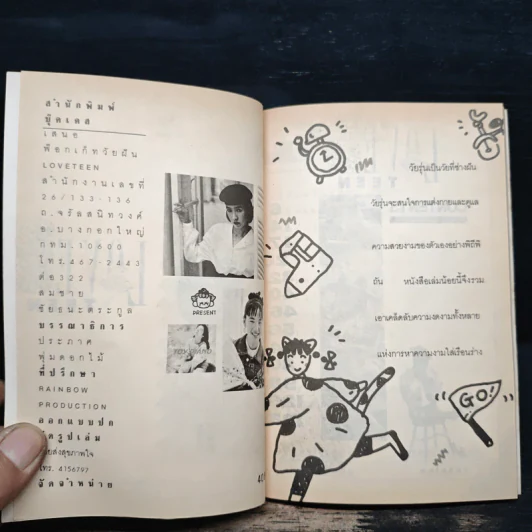 สำนักพิมพ์
บุ๊คเดส
เสนอ
พ๊อกเก็ทวัยฝัน
LOVETEEN
สำนักงานเลขที่
26/133-136
ถ.จรัลสนิทวงศ์
อ.บางกอกใหญ่
กทม.10600
โทร.467-2443
ต่อ322
สมชาย
ชัยธนะตระกูล
บรรณาธิการ
ประภาศ
พุ่มดอกไม้
ที่ปรึกษา
RAINBOW
PRODUCTION
ออกแบบปก
จัดรูปเล่ม
ส่งสุขภาพใจ
โทร. 4156797
จัดจำหน่าย
PRESENT
วัยรุ่นเป็นวัยที่ช่างฝัน
วัยรุ่นจะสนใจการแต่งกายและดูแล
ความสวยงามของตัวเองอย่างพิถีพิ
ถัน หนังสือเล่มน้อยนี้จึงรวม
เอาเคล็ดลับความงดงามทั้งหลาย
แห่งการหาความงามใส่เรือนร่าง
2
GO!